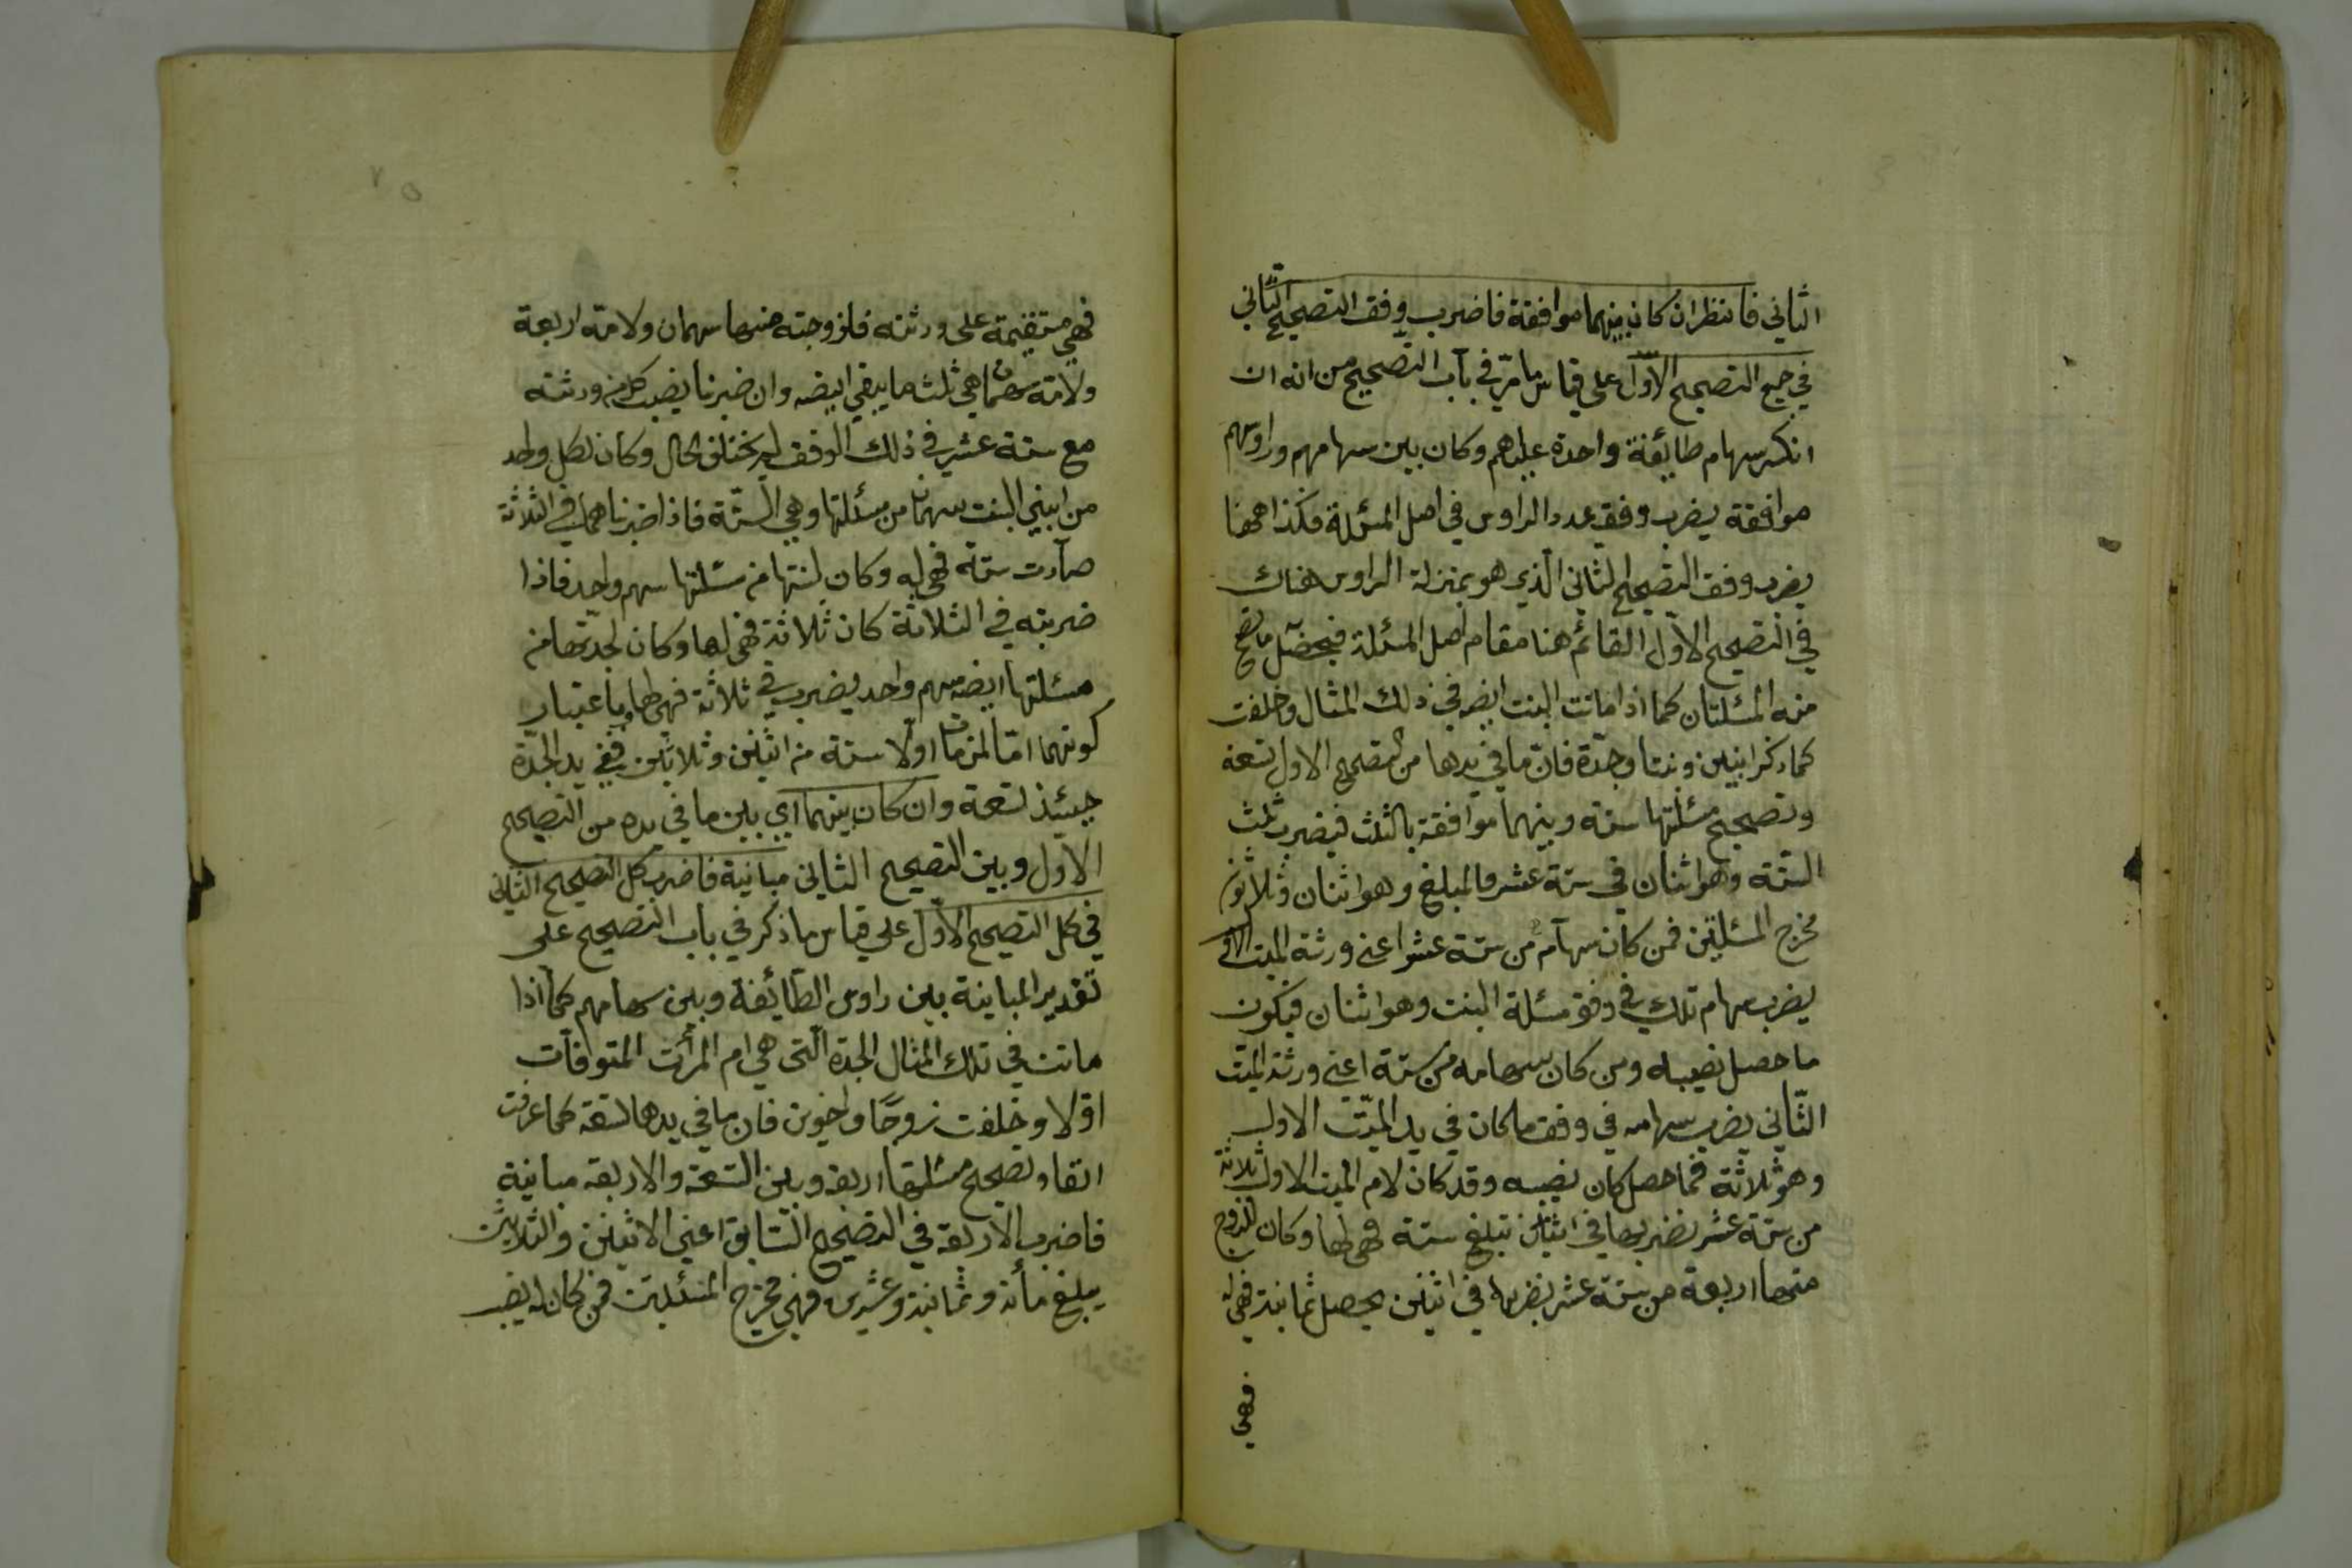 الثاني فانظر ان كان بينهما موافقة فاضرب وفق التصحيح الثاني
في جميع التصحيح الاوّل على قياس ما مرّ في باب التصحيح من انه ان
انكسر سهام طائفة واحدة عليهم وكان بين سهامهم وراوسهم
موافقة يضرب وفق عدد الراوس في اصل المسئلة فكذا ههنا
يضرب وفق التصحيح الثاني الّذي هو بمنزلة الراوس هناك
في التصحيح الاوّل القائم هنا مقام اصل المسئلة فيحصل ما تصح
منه المسئلتان كما اذا ماتت البنت ايضه في ذلك المثال وخلفت
كما ذكر ابنين وبنتا وجدّة فانّ ما في يدها من التصحيح الاول تسعة
وتصحيح مسئلتها ستة وبينهما موافقة بالثلث فيضرب ثلث
الستة وهو اثنان في ستة عشر فالمبلغ وهو اثنان وثلاثون
مخرج المسئلتين فمن كان سهامه من ستة عشر اعني ورثة الميت الاول
يضرب سهام تلك في وفق مسئلة البنت وهو اثنان فيكون
ما حصل نصيبه ومن كان سهامه من ستة اعني ورثة الميّت
الثّاني يضرب سهامه في وفق ما كان في يد الميّت الاول
وهو ثلاثة فما حصل كان نصيبه وقد كان لام الميت الاول ثلاثة
من ستة عشر نضربها في اثنين تبلغ ستة فهي لها وكان للزوج
منها اربعة من ستة عشر نضربها في اثنين يحصل ثمانية فهي له
فهي
فهي مستقيمة على ورثته فلزوجته منها سهمان ولامه اربعة
ولامه سهمان هي ثلث ما يبقي ايضه وان ضربنا نصيب كل من ورثته
مع ستة عشر في ذلك الوفق لم يختلف الحال وكان لكل واحد
من ابني البنت سهمان من مسئلتها وهي السّتّة فاذا ضربناهما في الثلاثة
صارت ستة فهي له وكان لبنتها من مسئلتها سهم واحد فاذا
ضربته في الثلاثة كان ثلاثة فهي لها وكان لجدتها من
مسئلتها ايضه سهم واحد يضرب في ثلاثة فهي لها وباعتبار
كونهما امّا لمن مات اولا ستة من اثنين وثلاثين ففي يد الجدّة
حينئذ تسعة وان كان بينهما اي بين ما في يده من التصحيح
الاول وبين التصحيح الثاني مباينة فاضرب كل التصحيح الثاني
في كل التصحيح الاوّل على قياس ما ذكر في باب التصحيح على
تقدير المباينة بين راوس الطّائفة وبين سهامهم كما اذا
ماتت في تلك المثال الجدة الّتي هي ام المرأت المتوفات
اولا وخلفت زوجًا واخوين فان ما في يدها تسعة كما عرفت
انفا وتصحيح مسئلتها اربعة وبين التسعة والاربعة مباينة
فاضرب الاربعة في التصحيح السّابق اعني الاثنين والثلاثين
يبلغ مأئة وثمانية وعشرين فهي مخرج المسئلتين فمن كان له نصيب